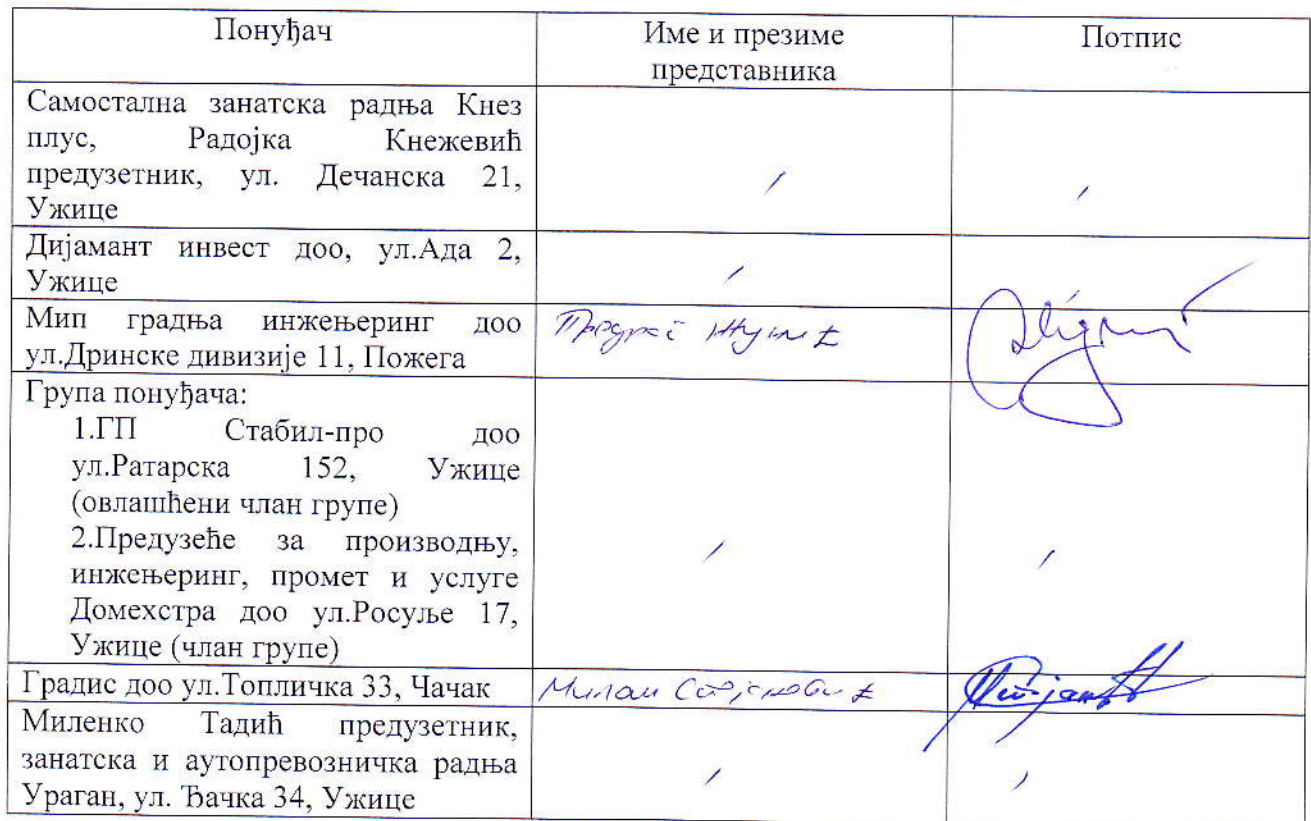 Понуђач
Име и презиме
представника
Потпис
Самостална занатска радња Кнез
плус, Радојка Кнежевић
предузетник, ул. Дечанска 21,
Ужице
/
/
Дијамант инвест доо, ул.Ада 2,
Ужице
/
/
Мип градња инжењеринг доо
ул.Дринске дивизије 11, Пожега
Група понуђача:
1.ГП Стабил-про доо
ул.Ратарска 152, Ужице
(овлашћени члан групе)
2.Предузеће за производњу,
инжењеринг, промет и услуге
Домехстра доо ул.Росуље 17,
Ужице (члан групе)
/
/
Градис доо ул.Топличка 33, Чачак
Милан
Миленко Тадић предузетник,
занатска и аутопревозничка радња
Ураган, ул. Ђачка 34, Ужице
/
/